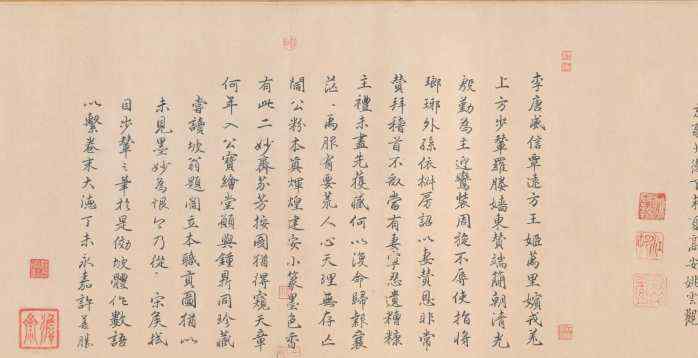 李唐威信覃遠方王姬萬里嬪戎羌
上方步輦羅媵嬙東贊端簡朝清光
殷勤為主迎鸞裝周旋不辱使指將
外孫依房詔以妻贊恩非常
贊拜稽首不敢當有妻寧忍遺糟糠
主禮未盡先獲臧何以復命歸報襄
茫〻禹服有要荒人心天理無存亡
閻公粉本真輝煌建安小篆墨色香
有此二妙齊芬芳按圖猶得窺天章
何年入公寶繪堂願與鍾鼎同珍藏
嘗讀坡翁題閻立本職貢圖猶以
未見墨妙為恨今乃從 宗侯拭
目步輦之筆於是效坡體作數語
以繫卷末大德丁未永嘉許善勝